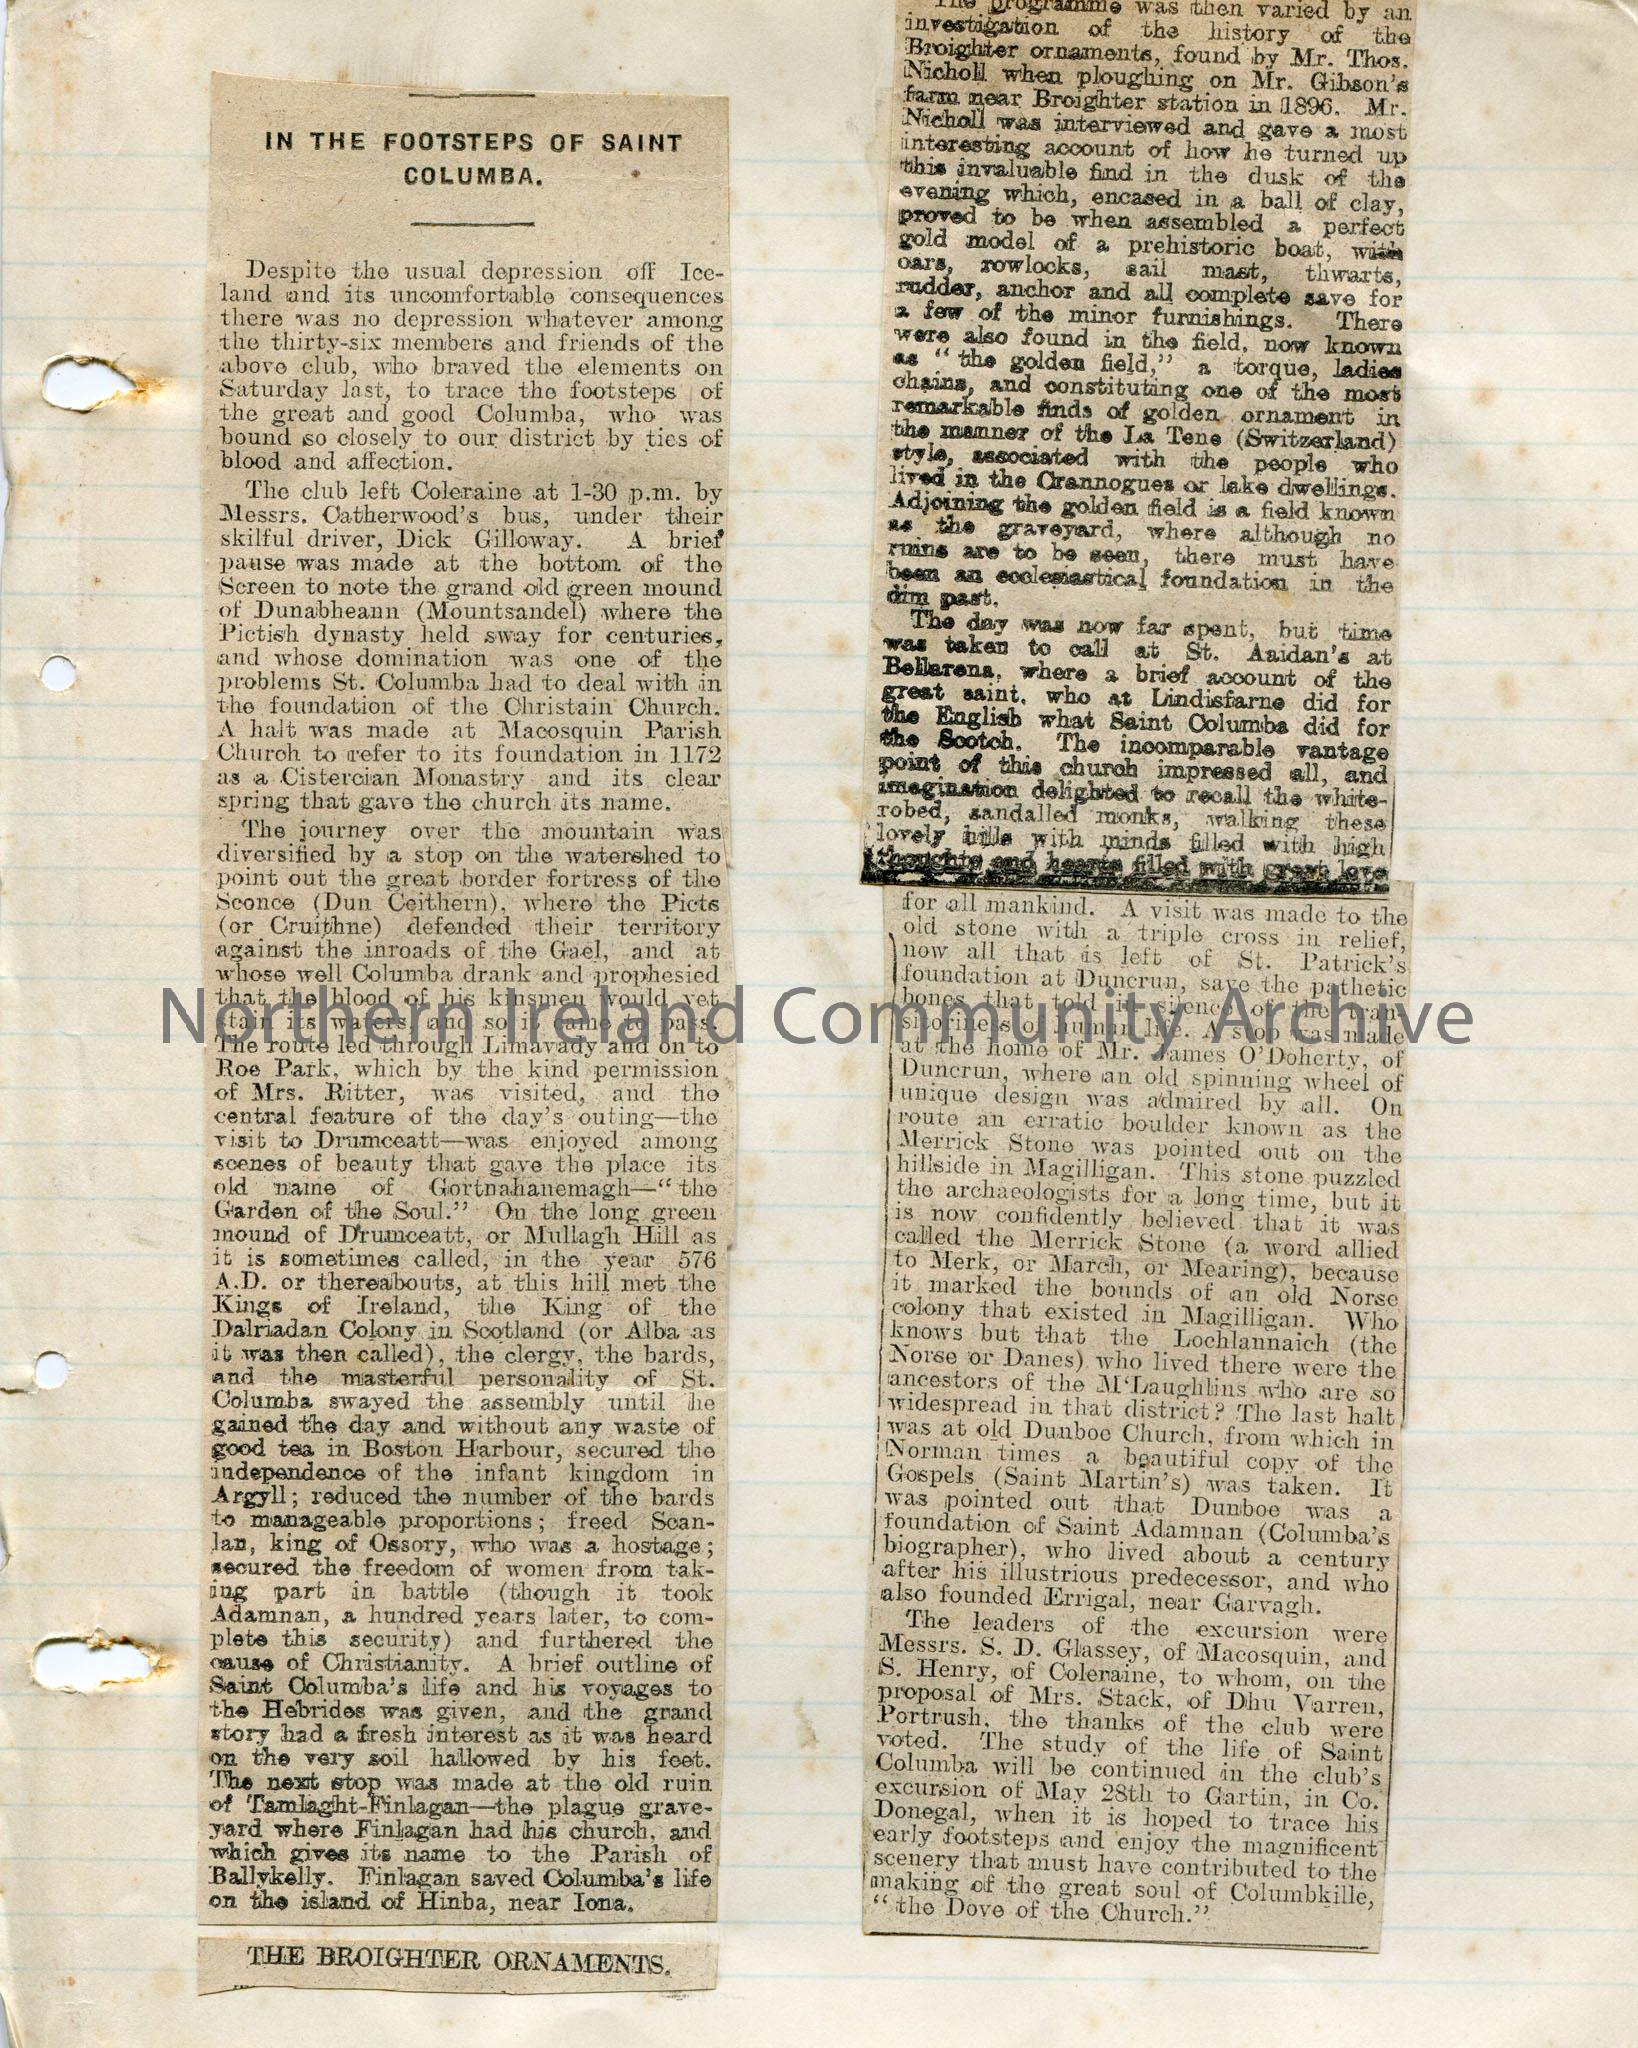 IN THE FOOTSTEPS OF SAINT
COLUMBA.
Despite the usual depression off Ice-
land and its uncomfortable consequences
there was no depression whatever among
the thirty-six members and friends of the
above club, who braved the elements on
Saturday last, to trace the footsteps of
the great and good Columba, who was
bound so closely to our district by ties of
blood and affection.
The club left Coleraine at 1-30 p.m. by
Messrs. Catherwood's bus, under their
skilful driver, Dick Gilloway. A brief
pause was made at the bottom of the
Screen to note the grand old green mound
of Dunabheann (Mountsandel) where the
Pictish dynasty held sway for centuries,
and whose domination was one of the
problems St. Columba had to deal with in
the foundation of the Christain Church.
A halt was made at Macosquin Parish
Church to refer to its foundation in 1172
as a Cistercian Monastry and its clear
spring that gave the church its name.
The journey over the mountain was
diversified by a stop on the watershed to
point out the great border fortress of the
Sconce (Dun Ceithern), where the Picts
(or Cruithne) defended their territory
against the inroads of the Gael, and at
whose well Columba drank and prophesied
that the blood of his kinsmen would yet
stain its waters, and so it came to pass.
The route led through Limavady and on to
Roe Park, which by the kind permission
of Mrs. Ritter, was visited, and the
central feature of the day's outing—the
visit to Drumceatt—was enjoyed among
scenes of beauty that gave the place its
old name of Gortnahanemagh—"the
Garden of the Soul." On the long green
mound of Drumceatt, or Mullagh Hill as
it is sometimes called, in the year 576
A.D. or thereabouts, at this hill met the
Kings of Ireland, the King of the
Dalriadan Colony in Scotland (or Alba as
it was then called), the clergy, the bards,
and the masterful personality of St.
Columba swayed the assembly until he
gained the day and without any waste of
good tea in Boston Harbour, secured the
independence of the infant kingdom in
Argyll; reduced the number of the bards
to manageable proportions; freed Scan-
lan, king of Ossory, who was a hostage;
secured the freedom of women from tak-
ing part in battle (though it took
Adamnan, a hundred years later, to com-
plete this security) and furthered the
cause of Christianity. A brief outline of
Saint Columba's life and his voyages to
the Hebrides was given, and the grand
story had a fresh interest as it was heard
on the very soil hallowed by his feet.
The next stop was made at the old ruin
of Tamlaght-Finlagan—the plague grave-
yard where Finlagan had his church, and
which gives its name to the Parish of
Ballykelly. Finlagan saved Columba's life
on the island of Hinba, near Iona.
THE BROIGHTER ORNAMENTS.
The programme was then varied by an
investigation of the history of the
Broighter ornaments, found by Mr. Thos.
Nicholl when ploughing on Mr. Gibson's
farm near Broighter station in 1896. Mr.
Nicholl was interviewed and gave a most
interesting account of how he turned up
this invaluable find in the dusk of the
evening which, encased in a ball of clay,
proved to be when assembled a perfect
gold model of a prehistoric boat, with
oars, rowlocks, sail mast, thwarts,
rudder, anchor and all complete save for
a few of the minor furnishings. There
were also found in the field, now known
as "the golden field," a torque, ladies
chains, and constituting one of the most
remarkable finds of golden ornament in
the manner of the La Tene (Switzerland)
style, associated with the people who
lived in the Crannogues or lake dwellings.
Adjoining the golden field is a field known
as the graveyard, where although no
ruins are to be seen, there must have
been an ecclesiastical foundation in the
dim past.
The day was now far spent, but time
was taken to call at St. Aaidan's at
Bellarena, where a brief account of the
great saint, who at Lindisfarne did for
the English what Saint Columba did for
the Scotch. The incomparable vantage
point of this church impressed all, and
imagination delighted to recall the white-
robed, sandalled monks, walking these
lovely hills with minds filled with high
thoughts and hearts filled with great love
for all mankind. A visit was made to the
old stone with a triple cross in relief,
now all that is left of St. Patrick's
foundation at Duncrun, save the pathetic
bones that told in silence of the tran-
sitoriness of human life. A stop was made
at the home of Mr. James O'Doherty, of
Duncrun, where an old spinning wheel of
unique design was admired by all. On
route an erratic boulder known as the
Merrick Stone was pointed out on the
hillside in Magilligan. This stone puzzled
the archaeologists for a long time, but it
is now confidently believed that it was
called the Merrick Stone (a word allied
to Merk, or March, or Mearing), because
it marked the bounds of an old Norse
colony that existed in Magilligan. Who
knows but that the Lochlannaich (the
Norse or Danes) who lived there were the
ancestors of the M'Laughlins who are so
widespread in that district? The last halt
was at old Dunboe Church, from which in
Norman times a beautiful copy of the
Gospels (Saint Martin's) was taken. It
was pointed out that Dunboe was a
foundation of Saint Adamnan (Columba's
biographer), who lived about a century
after his illustrious predecessor, and who
also founded Errigal, near Garvagh.
The leaders of the excursion were
Messrs. S. D. Glassey, of Macosquin, and
S. Henry, of Coleraine, to whom, on the
proposal of Mrs. Stack, of Dhu Varren,
Portrush, the thanks of the club were
voted. The study of the life of Saint
Columba will be continued in the club's
excursion of May 28th to Gartin, in Co.
Donegal, when it is hoped to trace his
early footsteps and enjoy the magnificent
scenery that must have contributed to the
making of the great soul of Columbkille,
"the Dove of the Church."
Northern Ireland Community Archive